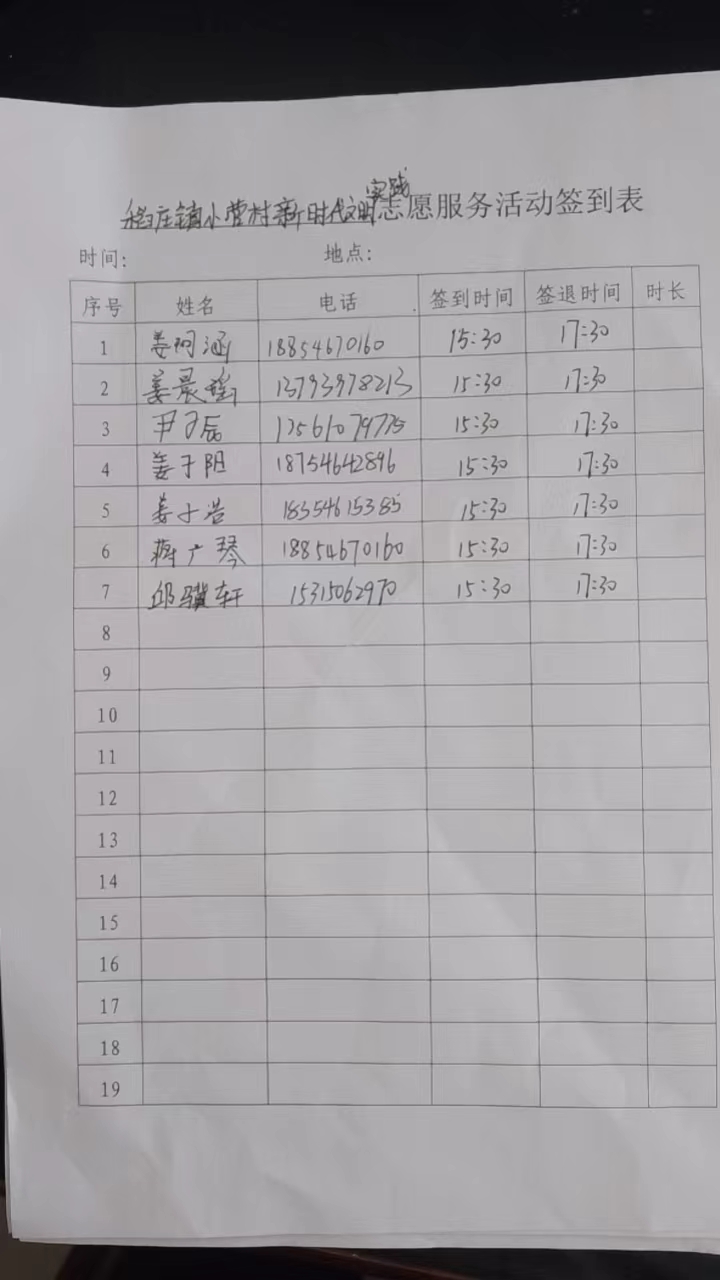 实践
稻庄镇小营村新时代文明志愿服务活动签到表
时间: 地点:
序号 姓名 电话 签到时间 签退时间 时长
1 姜珂涵 18854670160 15:30 17:30
2 姜晨瑶 13793978213 15:30 17:30
3 尹子辰 17561079775 15:30 17:30
4 姜子阳 18754642896 15:30 17:30
5 姜子浩 18354615385 15:30 17:30
6 蒋广琴 18854670160 15:30 17:30
7 邱骥轩 15315062970 15:30 17:30
8
9
10
11
12
13
14
15
16
17
18
19